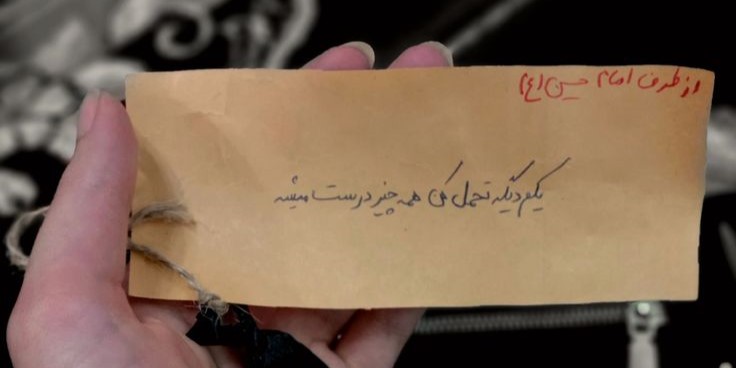 از طرف امام حسین (ع)
یکم دیگه تحمل کن همه چیز درست میشه